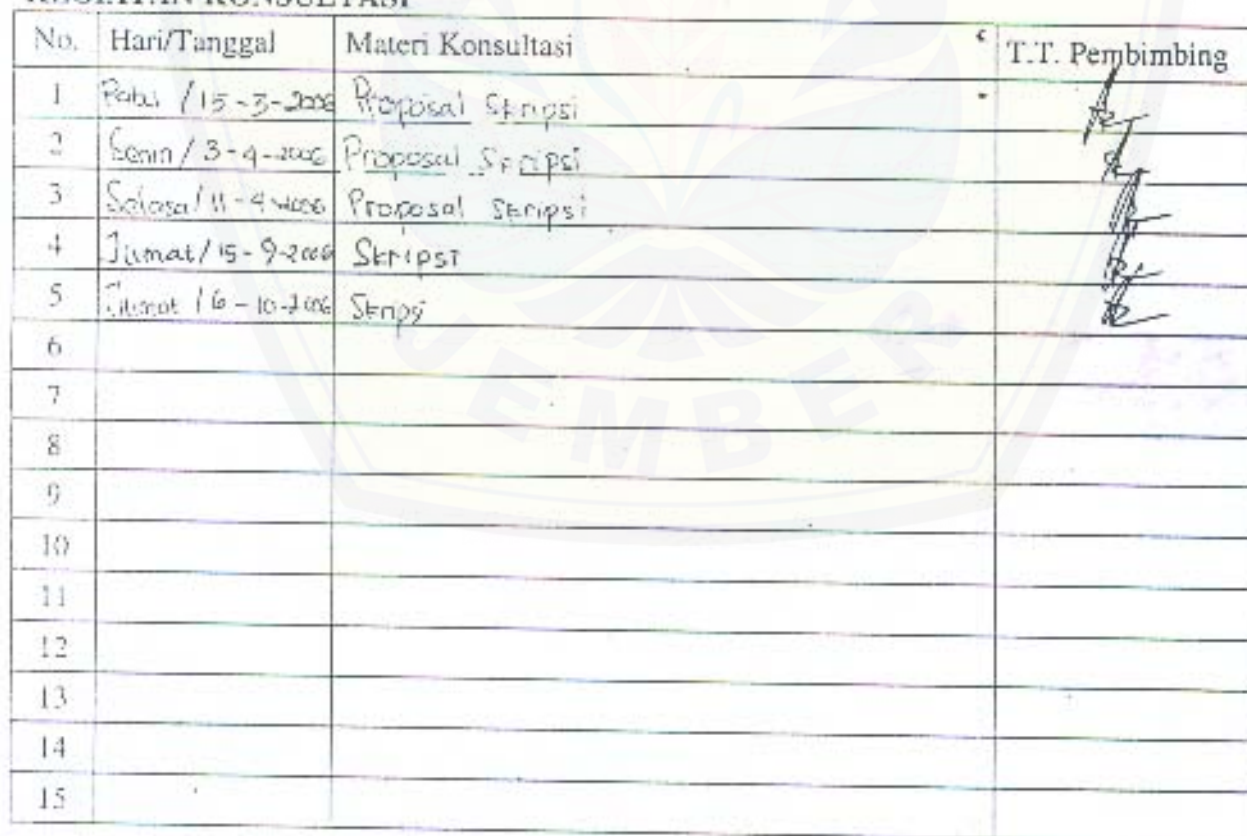 KEGIATAN KONSULTASI
No. Hari/Tanggal Materi Konsultasi T.T. Pembimbing
1 Rabu / 15-3-2006 Proposal Skripsi
2 Senin / 3-4-2006 Proposal Skripsi
3 Selasa / 11-4-2006 Proposal Skripsi
4 Jumat / 15-9-2006 Skripsi
5 Jumat / 6-10-2006 Skripsi
6
7
8
9
10
11
12
13
14
15
JEMBER